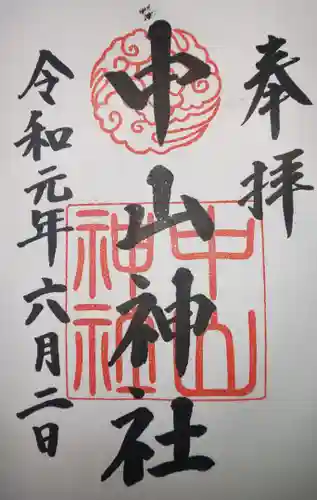 奉拝
中山神社
中山神社
令和元年六月二日